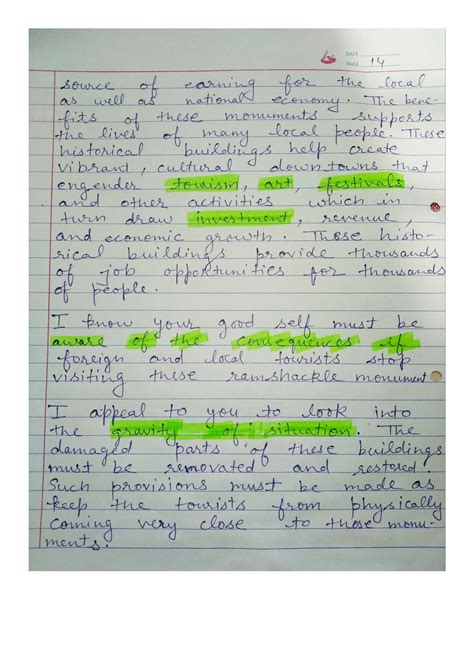 DATE
PAGE 14
source of earning for the local
as well as national economy. The bene-
fits of these monuments supports
the lives of many local people. These
historical buildings help create
vibrant, cultural downtowns that
engender tourism, art, festivals,
and other activities which in
turn draw investment, revenue,
and economic growth. These histo-
rical buildings provide thousands
of job opportunities for thousands
of people.
I know your good self must be
aware of the consequences if
foreign and local tourists stop
visiting these ramshackle monument
I appeal to you to look into
the gravity of situation. The
damaged parts of these buildings
must be renovated and restored.
Such provisions must be made as
keep the tourists from physically
coming very close to these monu-
ments.